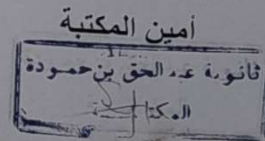 أمين المكتبة
ثانوية عبد الحق بن حمودة
المكتبة